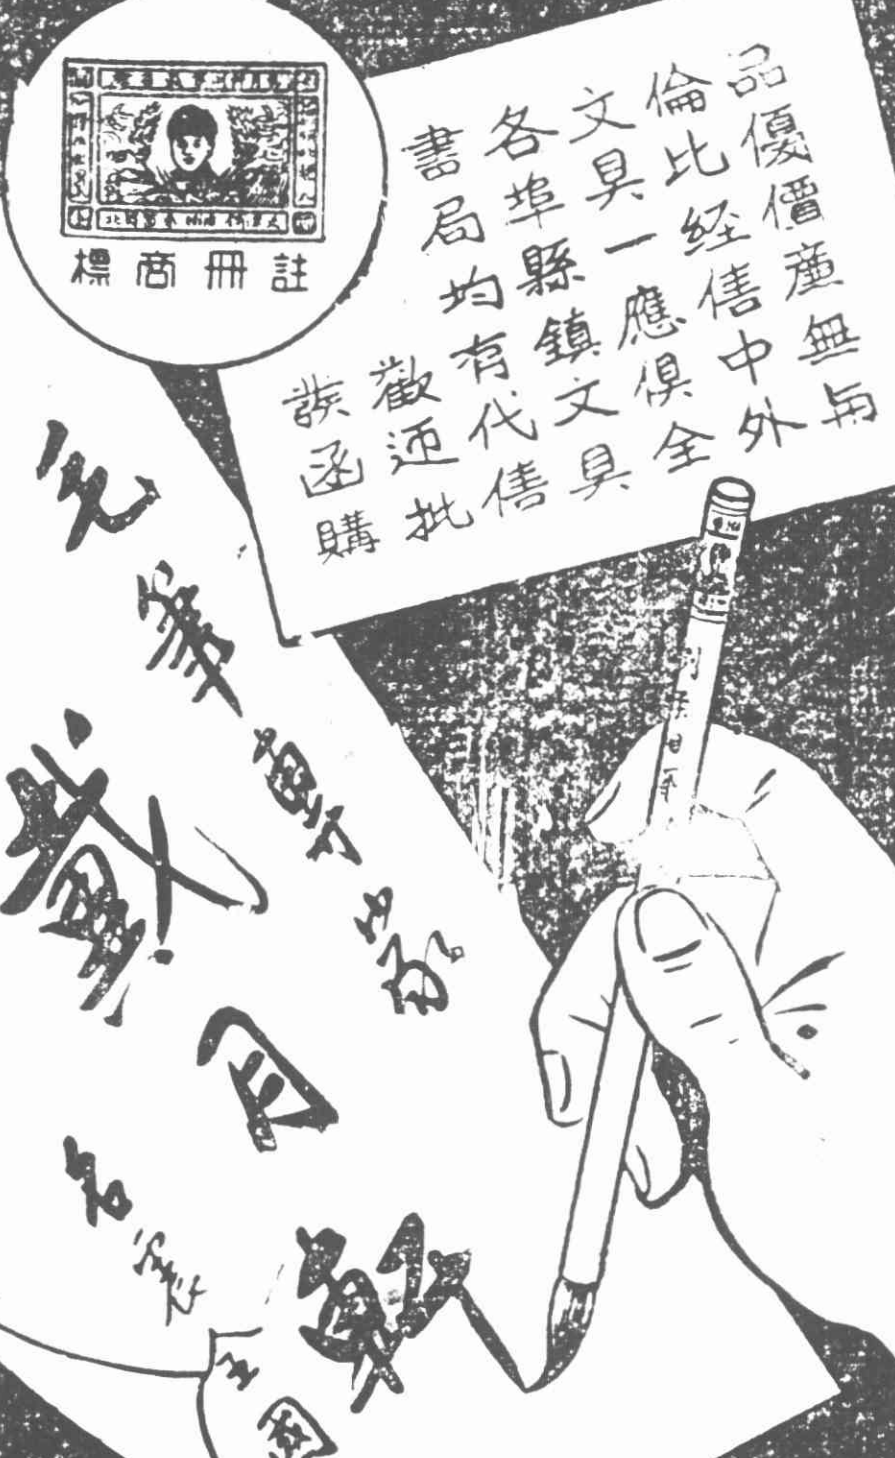 註冊商標
品優價廉無与
倫比経售中外
文具一應俱全
各埠縣鎮文具
書局均有代售
歡迎批
發函購
毛筆專家
戴月軒
名震全國